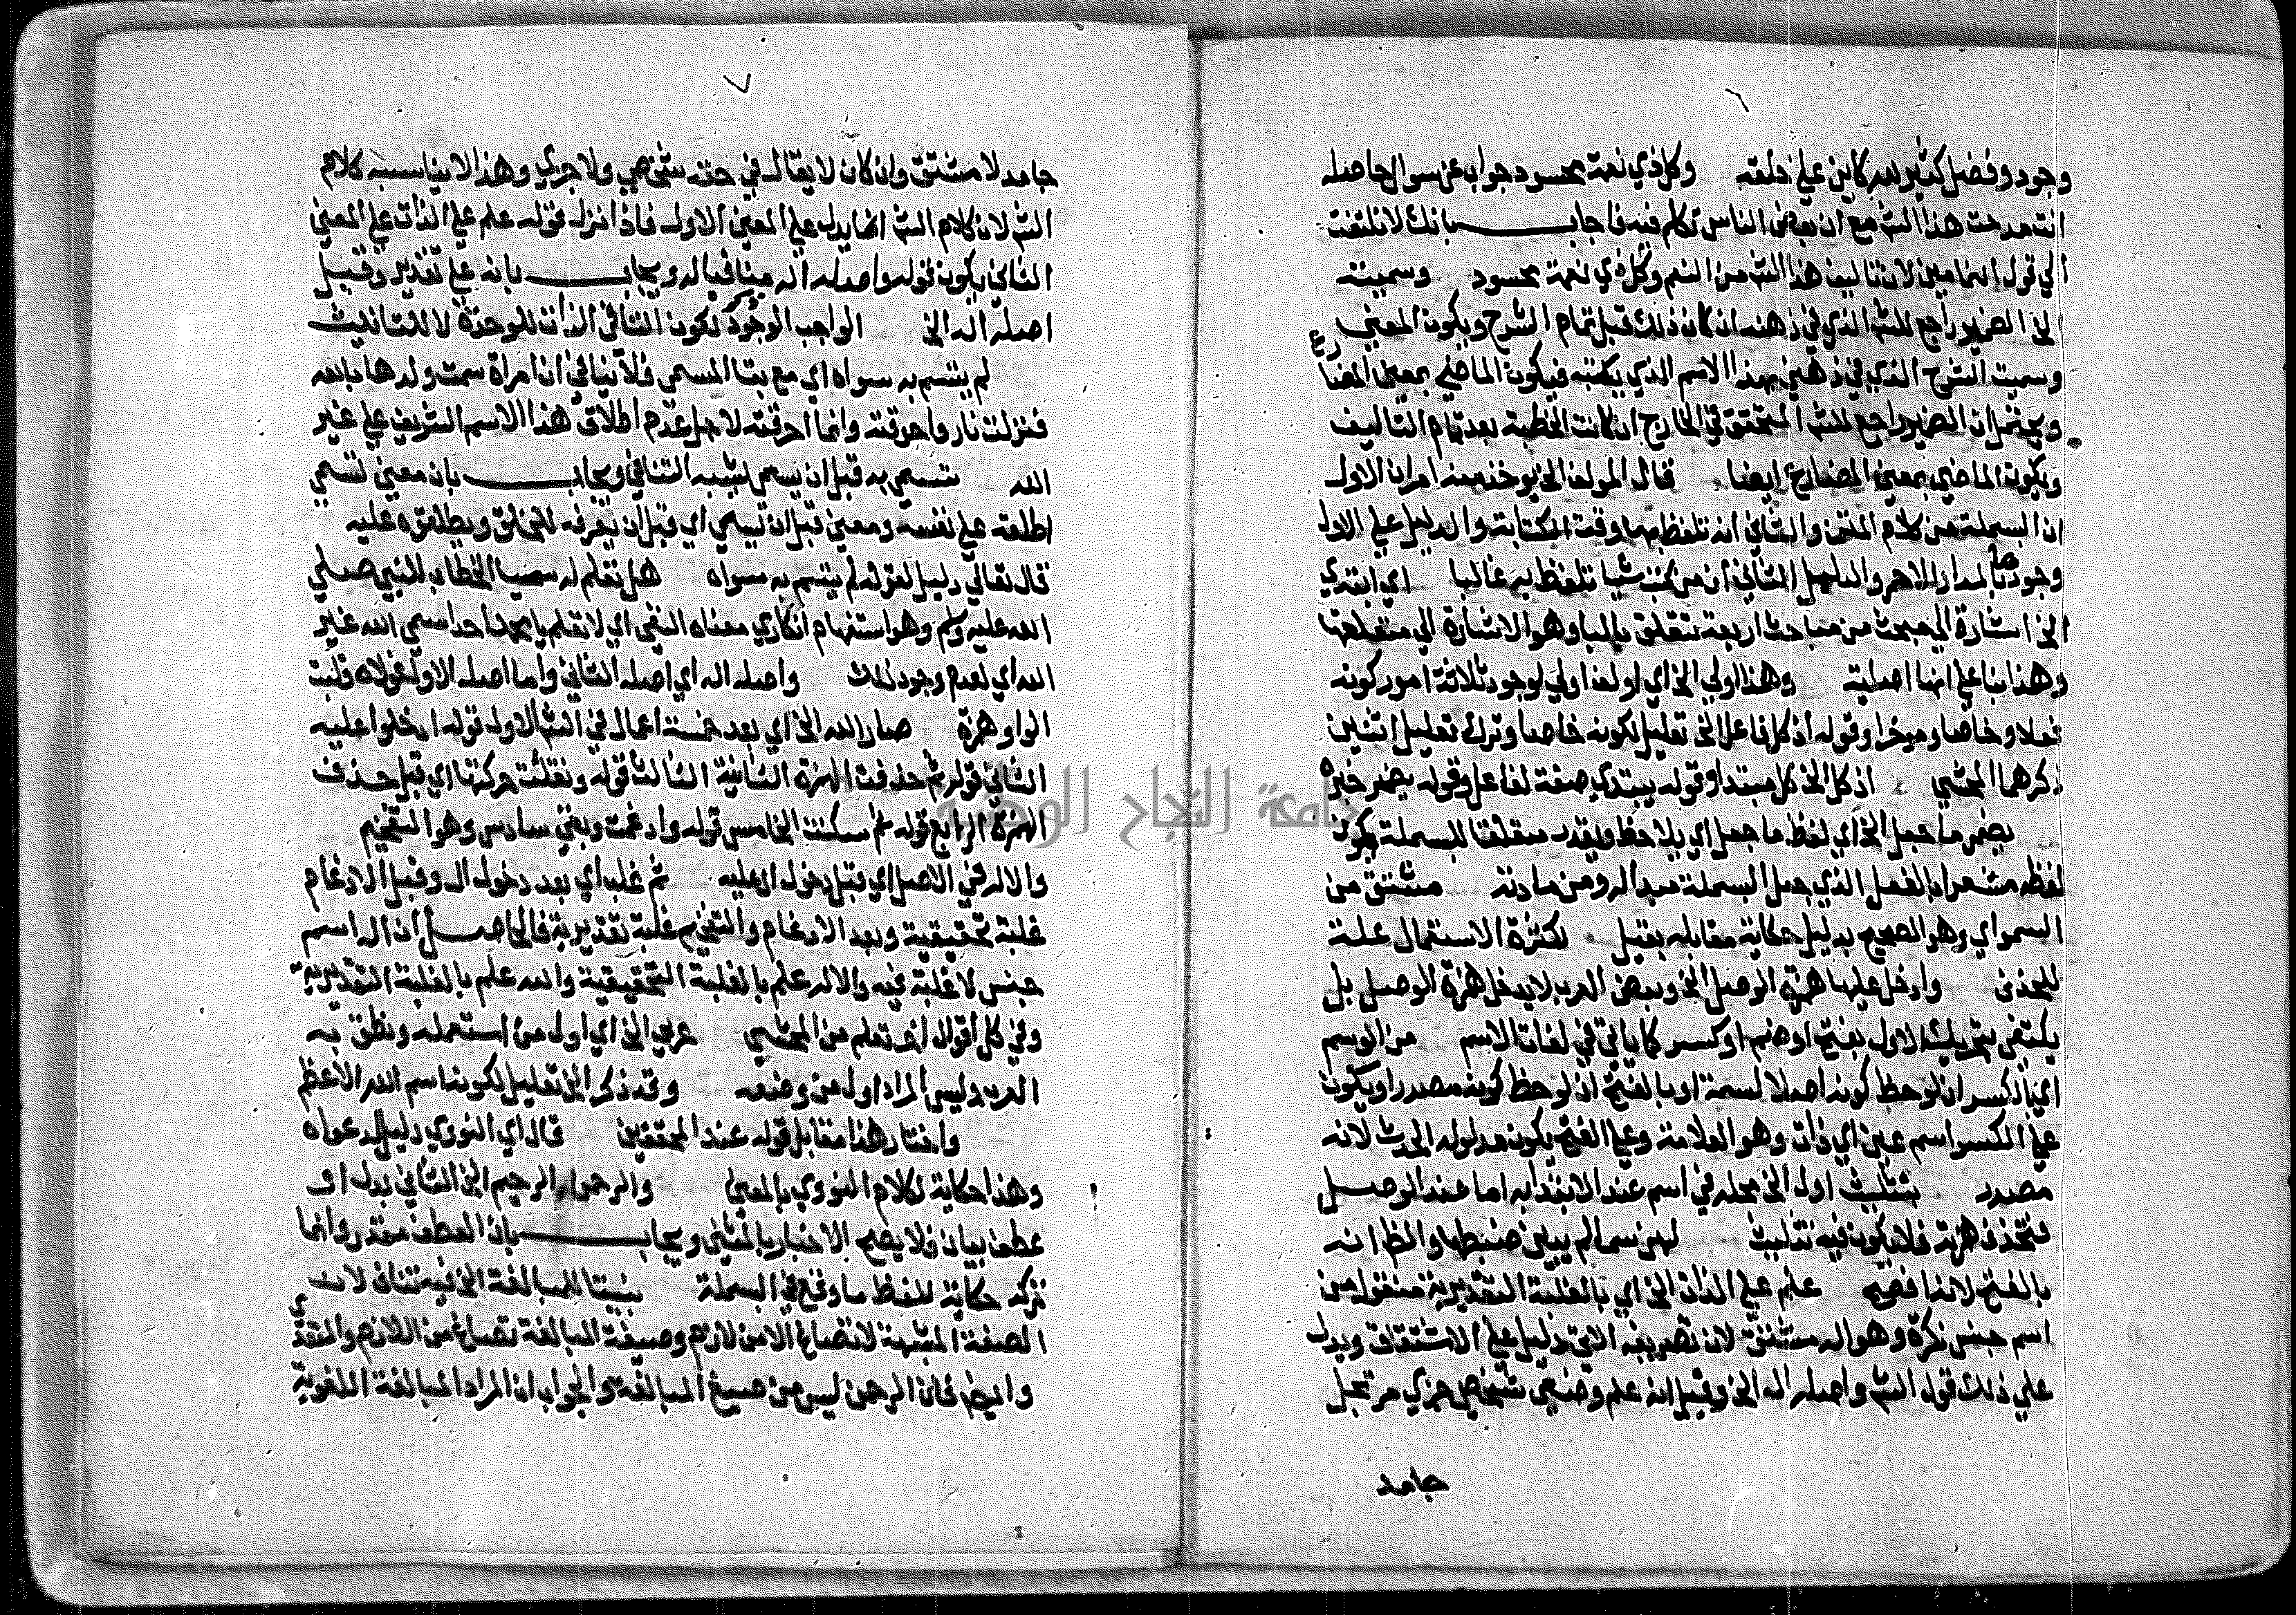 ٦
وجود وفضل كثير لله كاين على خلقه وكل ذي نعمة محسود جواب عن سوال حاصله
انت مدحت هذا الش مع ان بعض الناس تكلم فيه فاجاب بانك لا تلتفت
الي قول اللامين لان تاليف هذا الش من النعم وكل ذي نعمة محسود وسميته
الخ الضمير راجع للش الذي في ذهنه ان كان ذلك قبل تمام الشرح ويكون المعني
وسميت الشرح الذي في ذهني بهذا الاسم الذي يكتبه فيكون الماضي بمعني المضارع
ويحتمل ان الضمير راجع للش المتحقق في الخارج ان كانت الخطبة بعد تمام التاليف
ويكون الماضي بمعني المضارع ايضا قال المولف الخ يوخذ منه امران الاول
ان البسملة من كلام المتن والثاني انه تلفظ بها وقت الكتابة والدليل علي الاول
وجودها بالمداد الاحمر والدليل الثاني ان من كتب شيا تلفظ به غالبا اي ابتدي
الخ اشارة الي مبحث من مباحث اربعة تتعلق بالبا وهو الاشارة الي متعلقها
وهذا بنا علي انها اصلية وهذا اولي الخ اي اولها اولي لوجود ثلاثة امور كونه
فعلا وخاصا وموخرا وقوله اذ كل فاعل الخ تعليل لكونه خاصا وترك تعليل اثنين
ذكرهما المحشي اذ كل الخ كل مبتدا وقوله يبتدي صفة لفاعل وقوله يضمر خبره
يضمر ما جعل الخ اي لفظ ما جعل اي يلاحظ ويقدر متعلقا للبسملة يكون
لفظه مشعرا بالفعل الذي جعل البسملة مبدا له ومن مادته مشتق من
السمو اي وهو الصحيح بدليل حكاية مقابله بقيل لكثرة الاستعمال علة
للحذف وادخل عليها همزة الوصل الخ وبعض العرب لا يدخل همزة الوصل بل
يكتفي بتحريك الاول بفتح او ضم او كسر كما ياتي في لغات الاسم من الوسم
اي بالكسر ان لوحظ كونه اصلا لسمة او بالفتح ان لوحظ كونه مصدرا ويكون
علي الكسر اسم عين اي ذات وهو العلامة وعلي الفتح يكون مدلوله الحدث لانه
مصدر بتثليث اول الخ محله في اسم عند الابتدا به اما عند الوصل
فتحذف همزته فلا يكون فيه تثليث لهن سما لم يبين ضبطها والظ انه
بالفتح لانه افصح علم علي الذات الخ اي بالغلبة التقديرية منقول من
اسم جنس نكرة وهو اله مشتق لان تصريفه الاتي دليل علي الاشتقاق ويدل
علي ذلك قول الش واصله اله الخ وقيل انه علم وضعي شخصي جزي مرتجل
جامد
٧
جامد لا مشتق وان كان لا يقال في حقه شخصي ولا جزي وهذا لا يناسبه كلام
الش لان كلام الش انما يدل علي المعني الاول فاذا نزل قوله علم علي الذات علي المعني
الثاني يكون قوله واصله اله منافيا له ويجاب بانه علي تقدير وقيل
اصله اله الخ الواجب الوجود تكون التا في الذات للوحدة لا للتانيث
لم يتسم به سواه اي مع بقا المسمي فلا ينافي ان امراة سمت ولدها بالله
فنزلت نار واحرقته وانما احرقته لاجل عدم اطلاق هذا الاسم الشريف علي غير
الله تسمي به قبل ان يسمي لشبه التنافي ويجاب بان معني تسمي
اطلقه علي نفسه ومعني قبل ان يسمي اي قبل ان يعرفه للخلق ويطلقوه عليه
قال تعالي دليل لقوله لم يتسم به سواه هل تعلم له سميا الخطاب للنبي صلي
الله عليه وسلم وهو استفهام انكاري معناه النفي اي لا تعلم يا محمد احدا سمي الله غير
الله اي لعدم وجود ذلك واصله اله اي اصله الثاني واما اصله الاول فولاه قلبت
الواو همزة صار الله الخ اي بعد خمسة اعمال في الش الاول قوله ادخلوا عليه
الثاني قوله ثم حذفت الهمزة الثانية الثالث قوله ونقلت حركتها اي قبل حذف
الهمزة الرابع قوله ثم سكنت الخامس قوله وادغمت وبقي سادس وهو التفخيم
والاله في الاصل اي قبل دخول ال عليه ثم غلب اي بعد دخول ال وقبل الادغام
غلبة تحقيقية وبعد الادغام والتفخيم غلبة تقديرية فالحاصل ان اله اسم
جنس لا غلبة فيه والاله علم بالغلبة التحقيقية والله علم بالغلبة التقديرية
وفي كل اقوال اخر تعلم من المحشي عربي الخ اي اول من استعمله ونطق به
العرب وليس المراد اول من وضعه وقد ذكر الخ تعليل لكونه اسم الله الاعظم
واختار هذا مقابل قوله عند المحققين قال اي النووي دليل لدعواه
وهذا حكاية لكلام النووي بالمعني والرحمن الرحيم الخ الثاني بدل او
عطف بيان فلا يصح الاخبار بالمثني ويجاب بان العطف مقدر وانما
تركه حكاية للفظ ما وقع في البسملة بنيتا للمبالغة الخ فيه تناف لان
الصفة المشبهة لا تصاغ الا من لازم وصيغة المبالغة تصاغ من اللازم والمتعدي
وايضا فان الرحمن ليس من صيغ المبالغة والجواب ان المراد المبالغة اللغوية
جامعة النجاح الوطنية